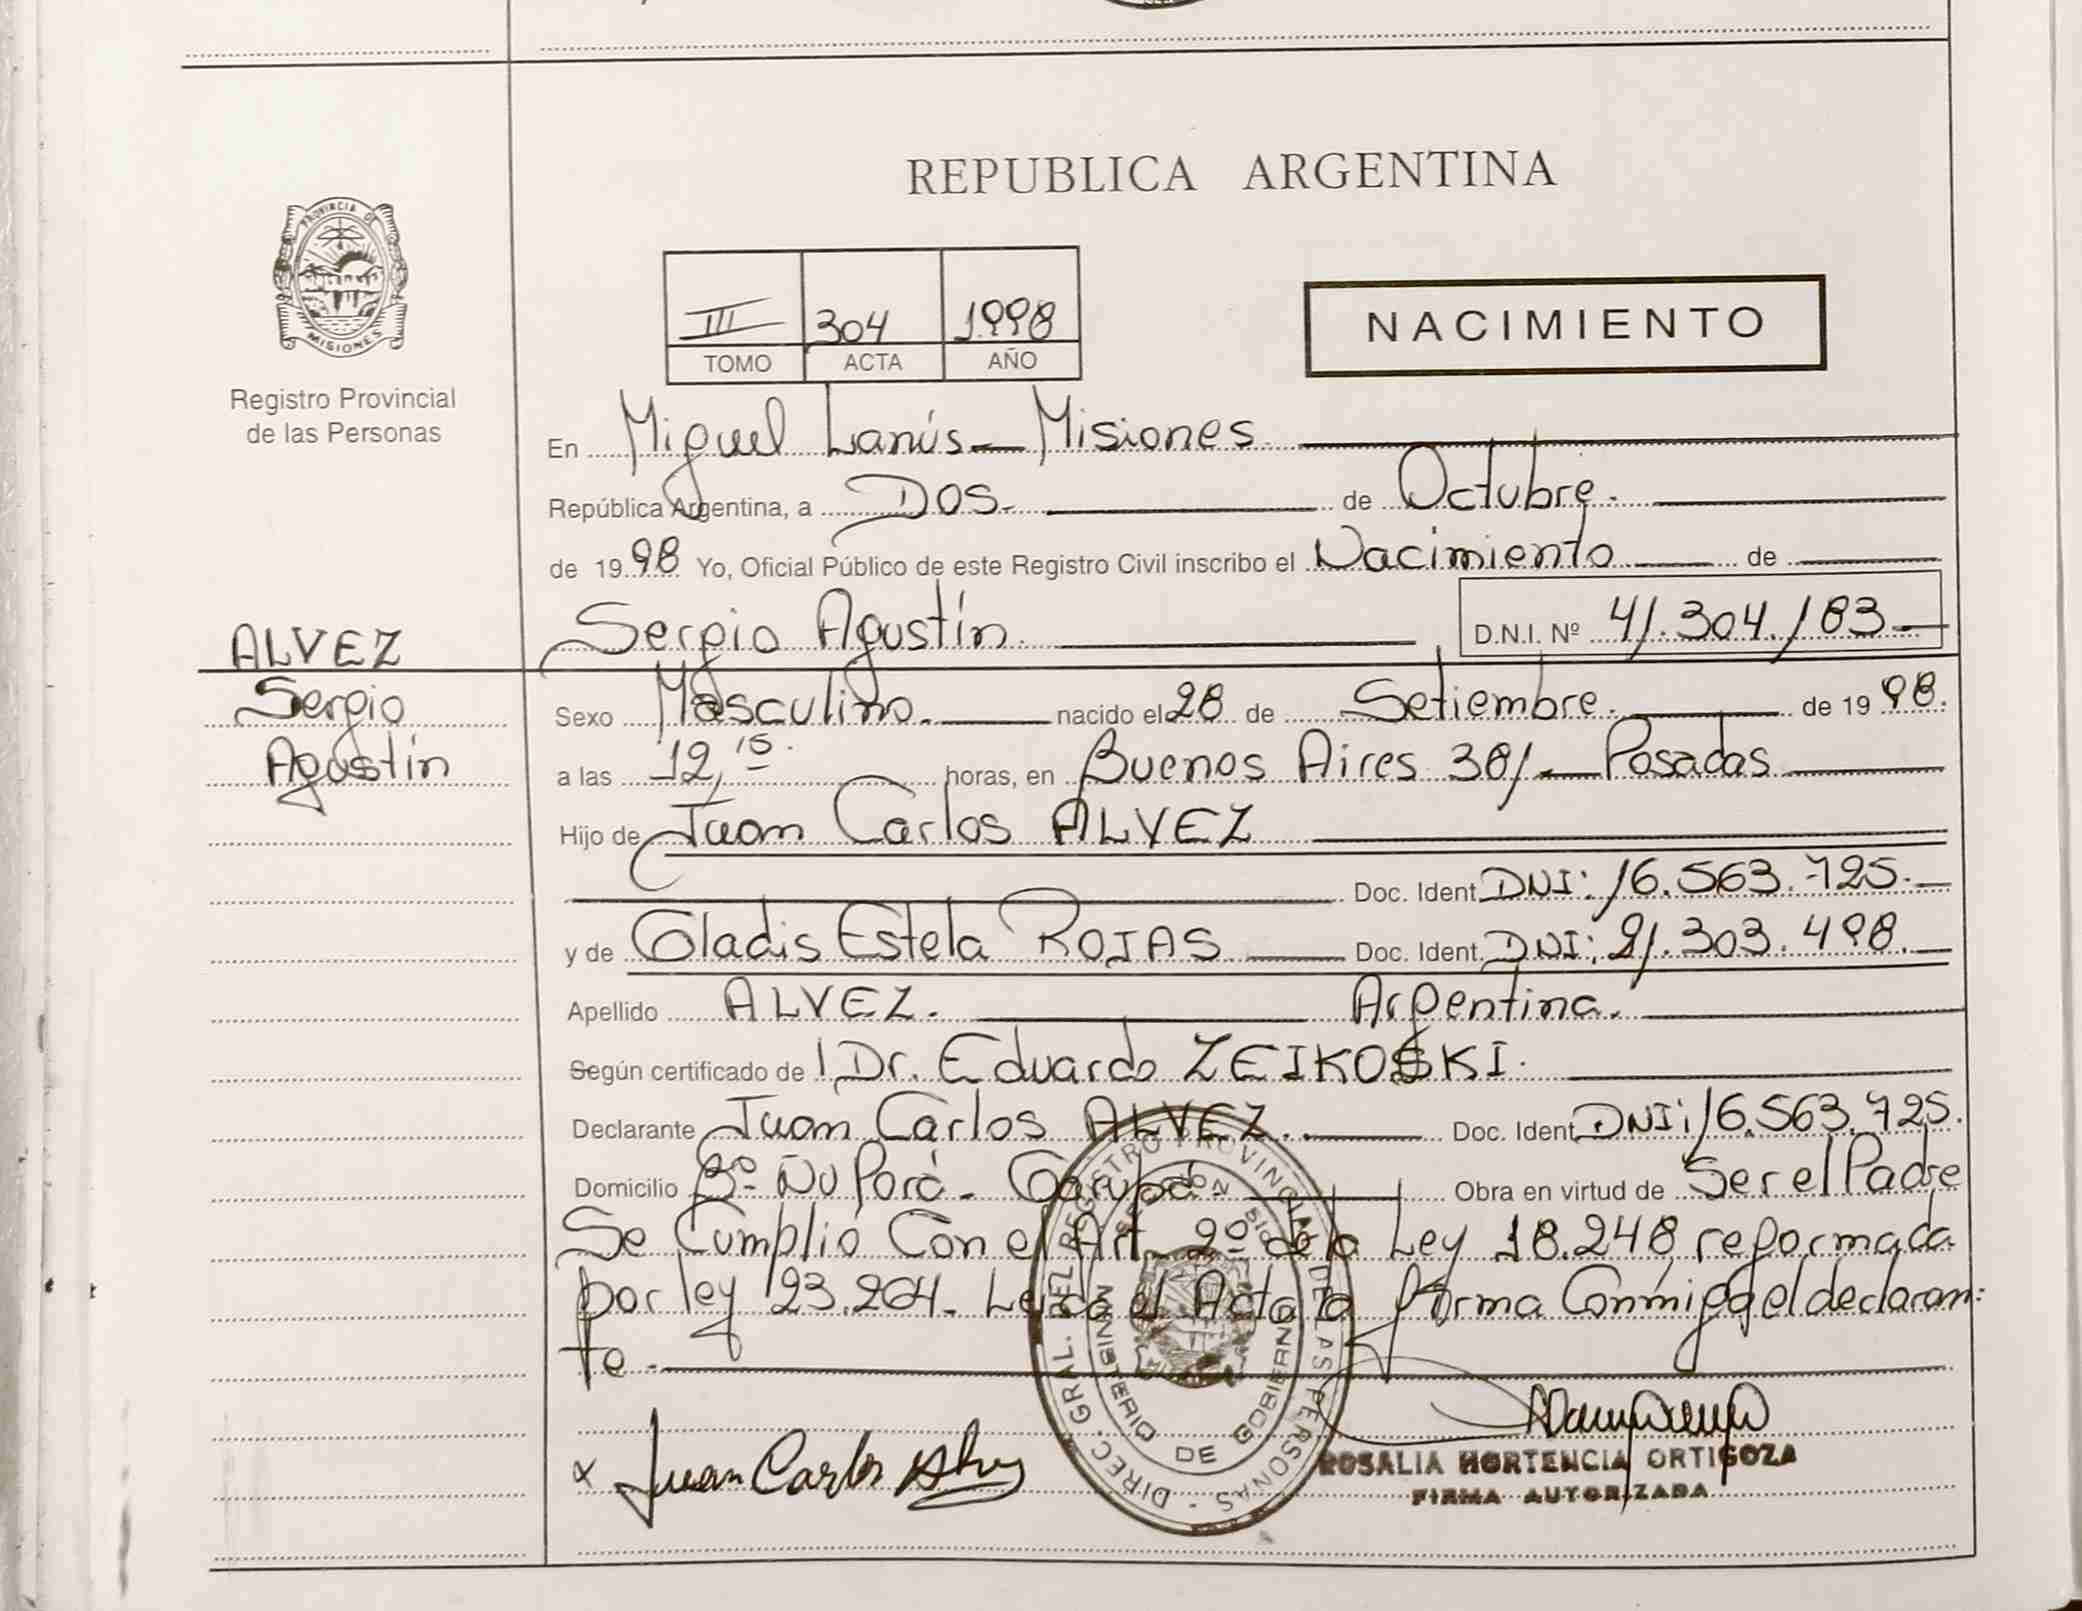 REPUBLICA ARGENTINA
PROVINCIA DE
MISIONES
Registro Provincial
de las Personas
III 304 1998
TOMO ACTA AÑO
NACIMIENTO
En Miguel Lanús - Misiones
República Argentina, a Dos. de Octubre.
de 1998 Yo, Oficial Público de este Registro Civil inscribo el Nacimiento de
ALVEZ
Sergio
Agustín
Sergio Agustín. D.N.I. Nº 41.304.183
Sexo Masculino. nacido el 28 de Setiembre. de 1998.
a las 12,15. horas, en Buenos Aires 381.- Posadas
Hijo de Juan Carlos ALVEZ
Doc. Ident. DNI: 16.563.725.
y de Gladis Estela ROJAS Doc. Ident. DNI: 21.303.498.
Apellido ALVEZ. Argentina.
Según certificado de Dr. Eduardo ZEIKOSKI.
Declarante Juan Carlos ALVEZ. Doc. Ident. DNI: 16.563.725.
Domicilio Bº Ñu Porá - Garupá - Obra en virtud de Ser el Padre
Se Cumplió Con el Art. 2º de la Ley 18.248 reformada
por ley 23.264. Leída el Acta la firma Conmigo el declaran-
te.
Juan Carlos Alvez
DIREC. GRAL. DEL REGISTRO PROVINCIAL DE LAS PERSONAS
MINISTERIO DE GOBIERNO
ROSALIA HORTENCIA ORTIGOZA
FIRMA AUTORIZADA